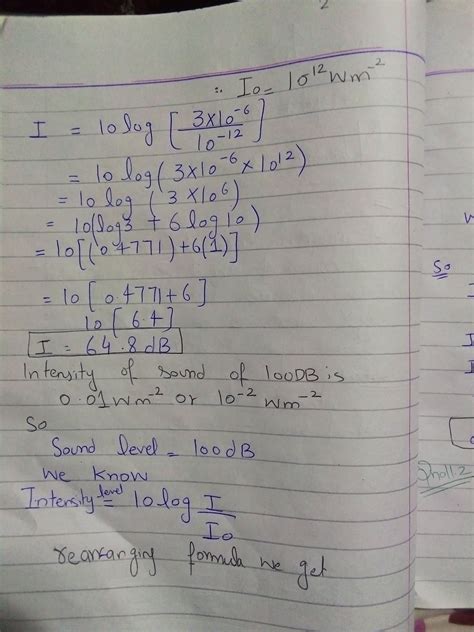 2
∴ I₀ = 10¹² Wm⁻²
I = 10 log [3×10⁻⁶ / 10⁻¹²]
= 10 log (3×10⁻⁶ × 10¹²)
= 10 log (3 ×10⁶)
= 10(log3 + 6 log 10)
= 10[(0.4771)+6(1)]
= 10[0.4771+6]
10[6.4]
I = 64.8 dB
Intensity of sound of 100DB is
0.01 Wm⁻² or 10⁻² Wm⁻²
So
Sound level = 100 dB
we know
Intensity level = 10 log I/I₀
rearranging formula we get
So